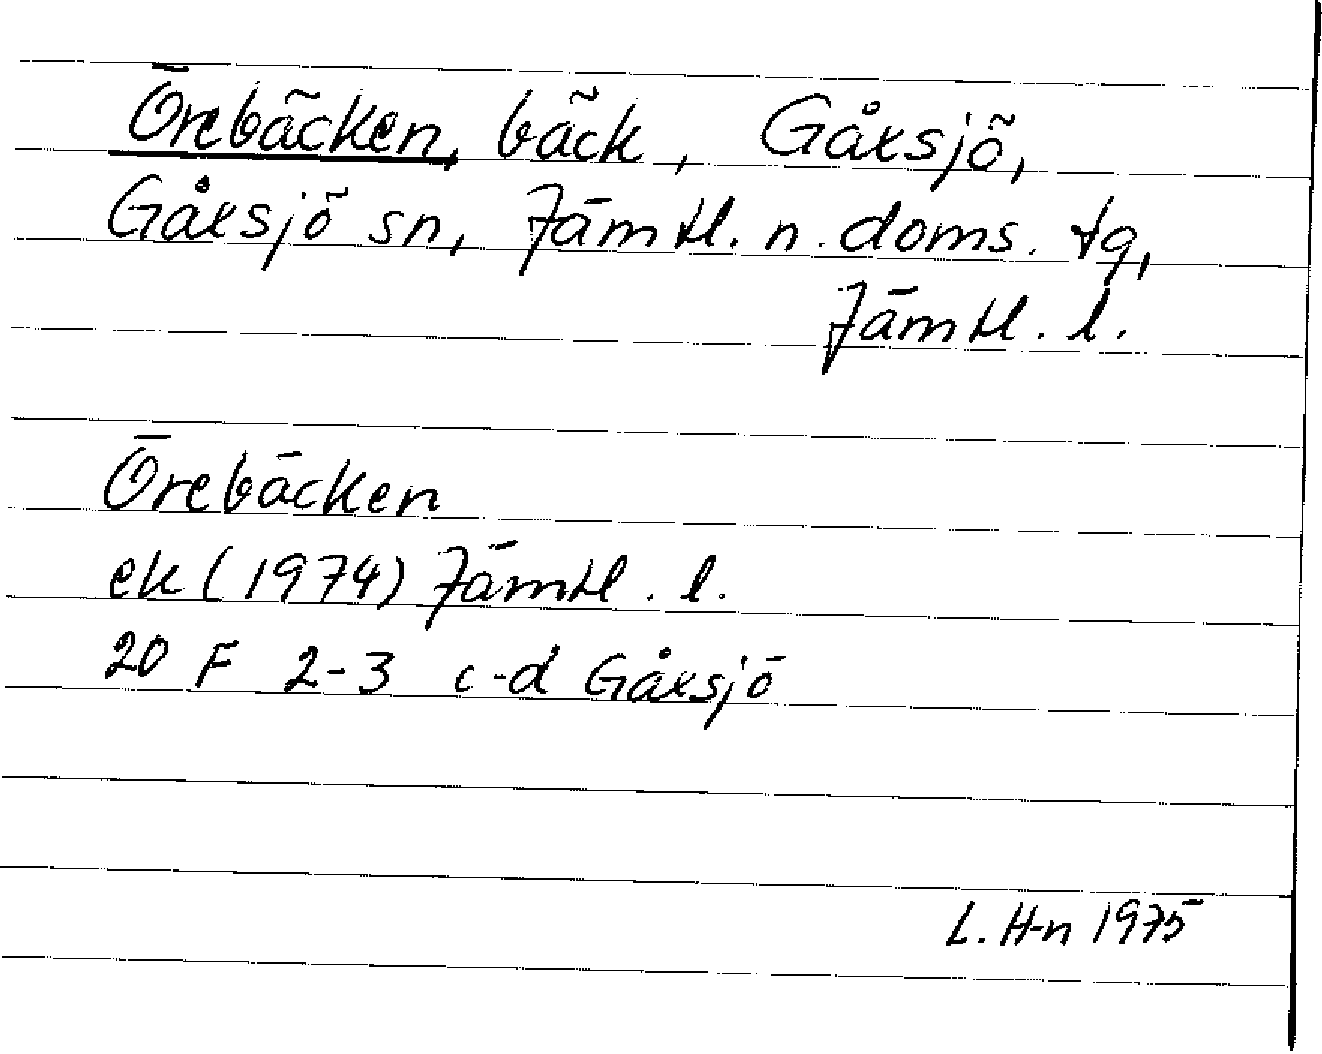 Örebäcken, bäck, Gåxsjö,
Gåxsjö sn, Jämtl. n. doms. tg,
Jämtl. l.
Örebäcken
ek (1974) Jämtl. l.
20 F 2-3 c-d Gåxsjö
L. H-n 1975